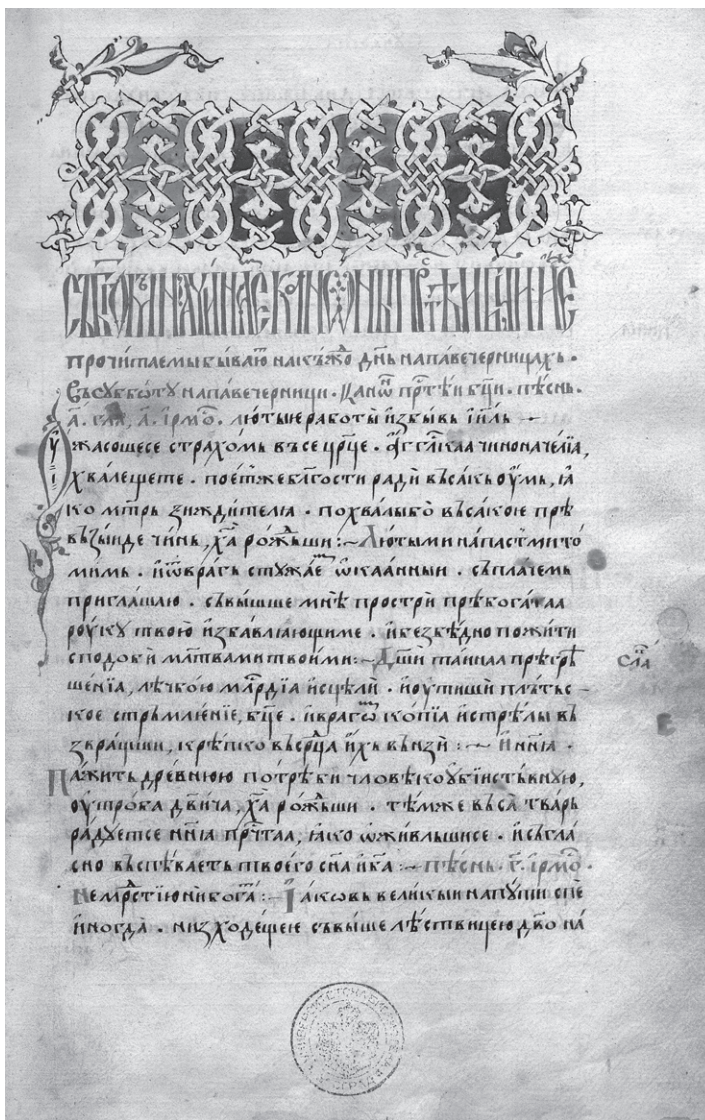 Съ б҃гѡⷨ начинаеⷨ канѡны прⷭ҇тѣи б҃ци иже
прочитаемы бываюⷮ на къжⷣо дн҃ь на павечерницахь ·
Въ субботу на павечерници · Канѡⷩ прⷭ҇тѣи б҃ци · пѣснь ·
а҃ · глаⷭ҇ , а҃ · ірмоⷭ҇ · лютые работы избывь і҃иль
Ужасошесе страхомь въсе цр҃це · агг҃лскаа чиноначелїа,
хвалещете · поет же бл҃гости ради въсакь оумь, ꙗ
ко мт҃рь зиждителꙗ · похвалы бо въсакою прѣ
възыиде чинь, хⷭ҇а рожⷣьши :~ Лютыми напастми то
мимь · и ѿ врагь стужаеⷨ ѡкаанныи · съ плачемь
приглашаю · съвышше мнѣ простри прѣбогатаа
роуку твою избавлꙗющи ме · и безбѣдно пожити
сподоби мл҃твами твоими :~ Дш҃и таинаа прѣгрѣ
слаⷡ҇
шенїа, лѣчбою млⷭ҇рдїа исцѣли · и оутиши плътьс
кое стрьмлꙗнїе, б҃це · и врагѡⷨ копїа и стрѣлы въ
звращши, крѣпко въ срⷣца ихь вънзи :~ И нн҃ꙗ ·
Пажить древнюю потрѣби чловѣкоубїиствьную,
оутроба дв҃ича, хⷭ҇а рожⷣьши · тѣмже въса тварь
радуетсе нн҃ꙗ прⷭ҇таа, ꙗко ѡживльшисе · и съгла
сно въспѣваеть твоего сн҃а и б҃а :~ пѣснь · г҃ · ірмоⷭ҇ ·
Не мрⷣстїю ни богаⷮ :~ Іаковь великыи на пути спе
иногда · низходещею съвыше лѣствицею дв҃о на